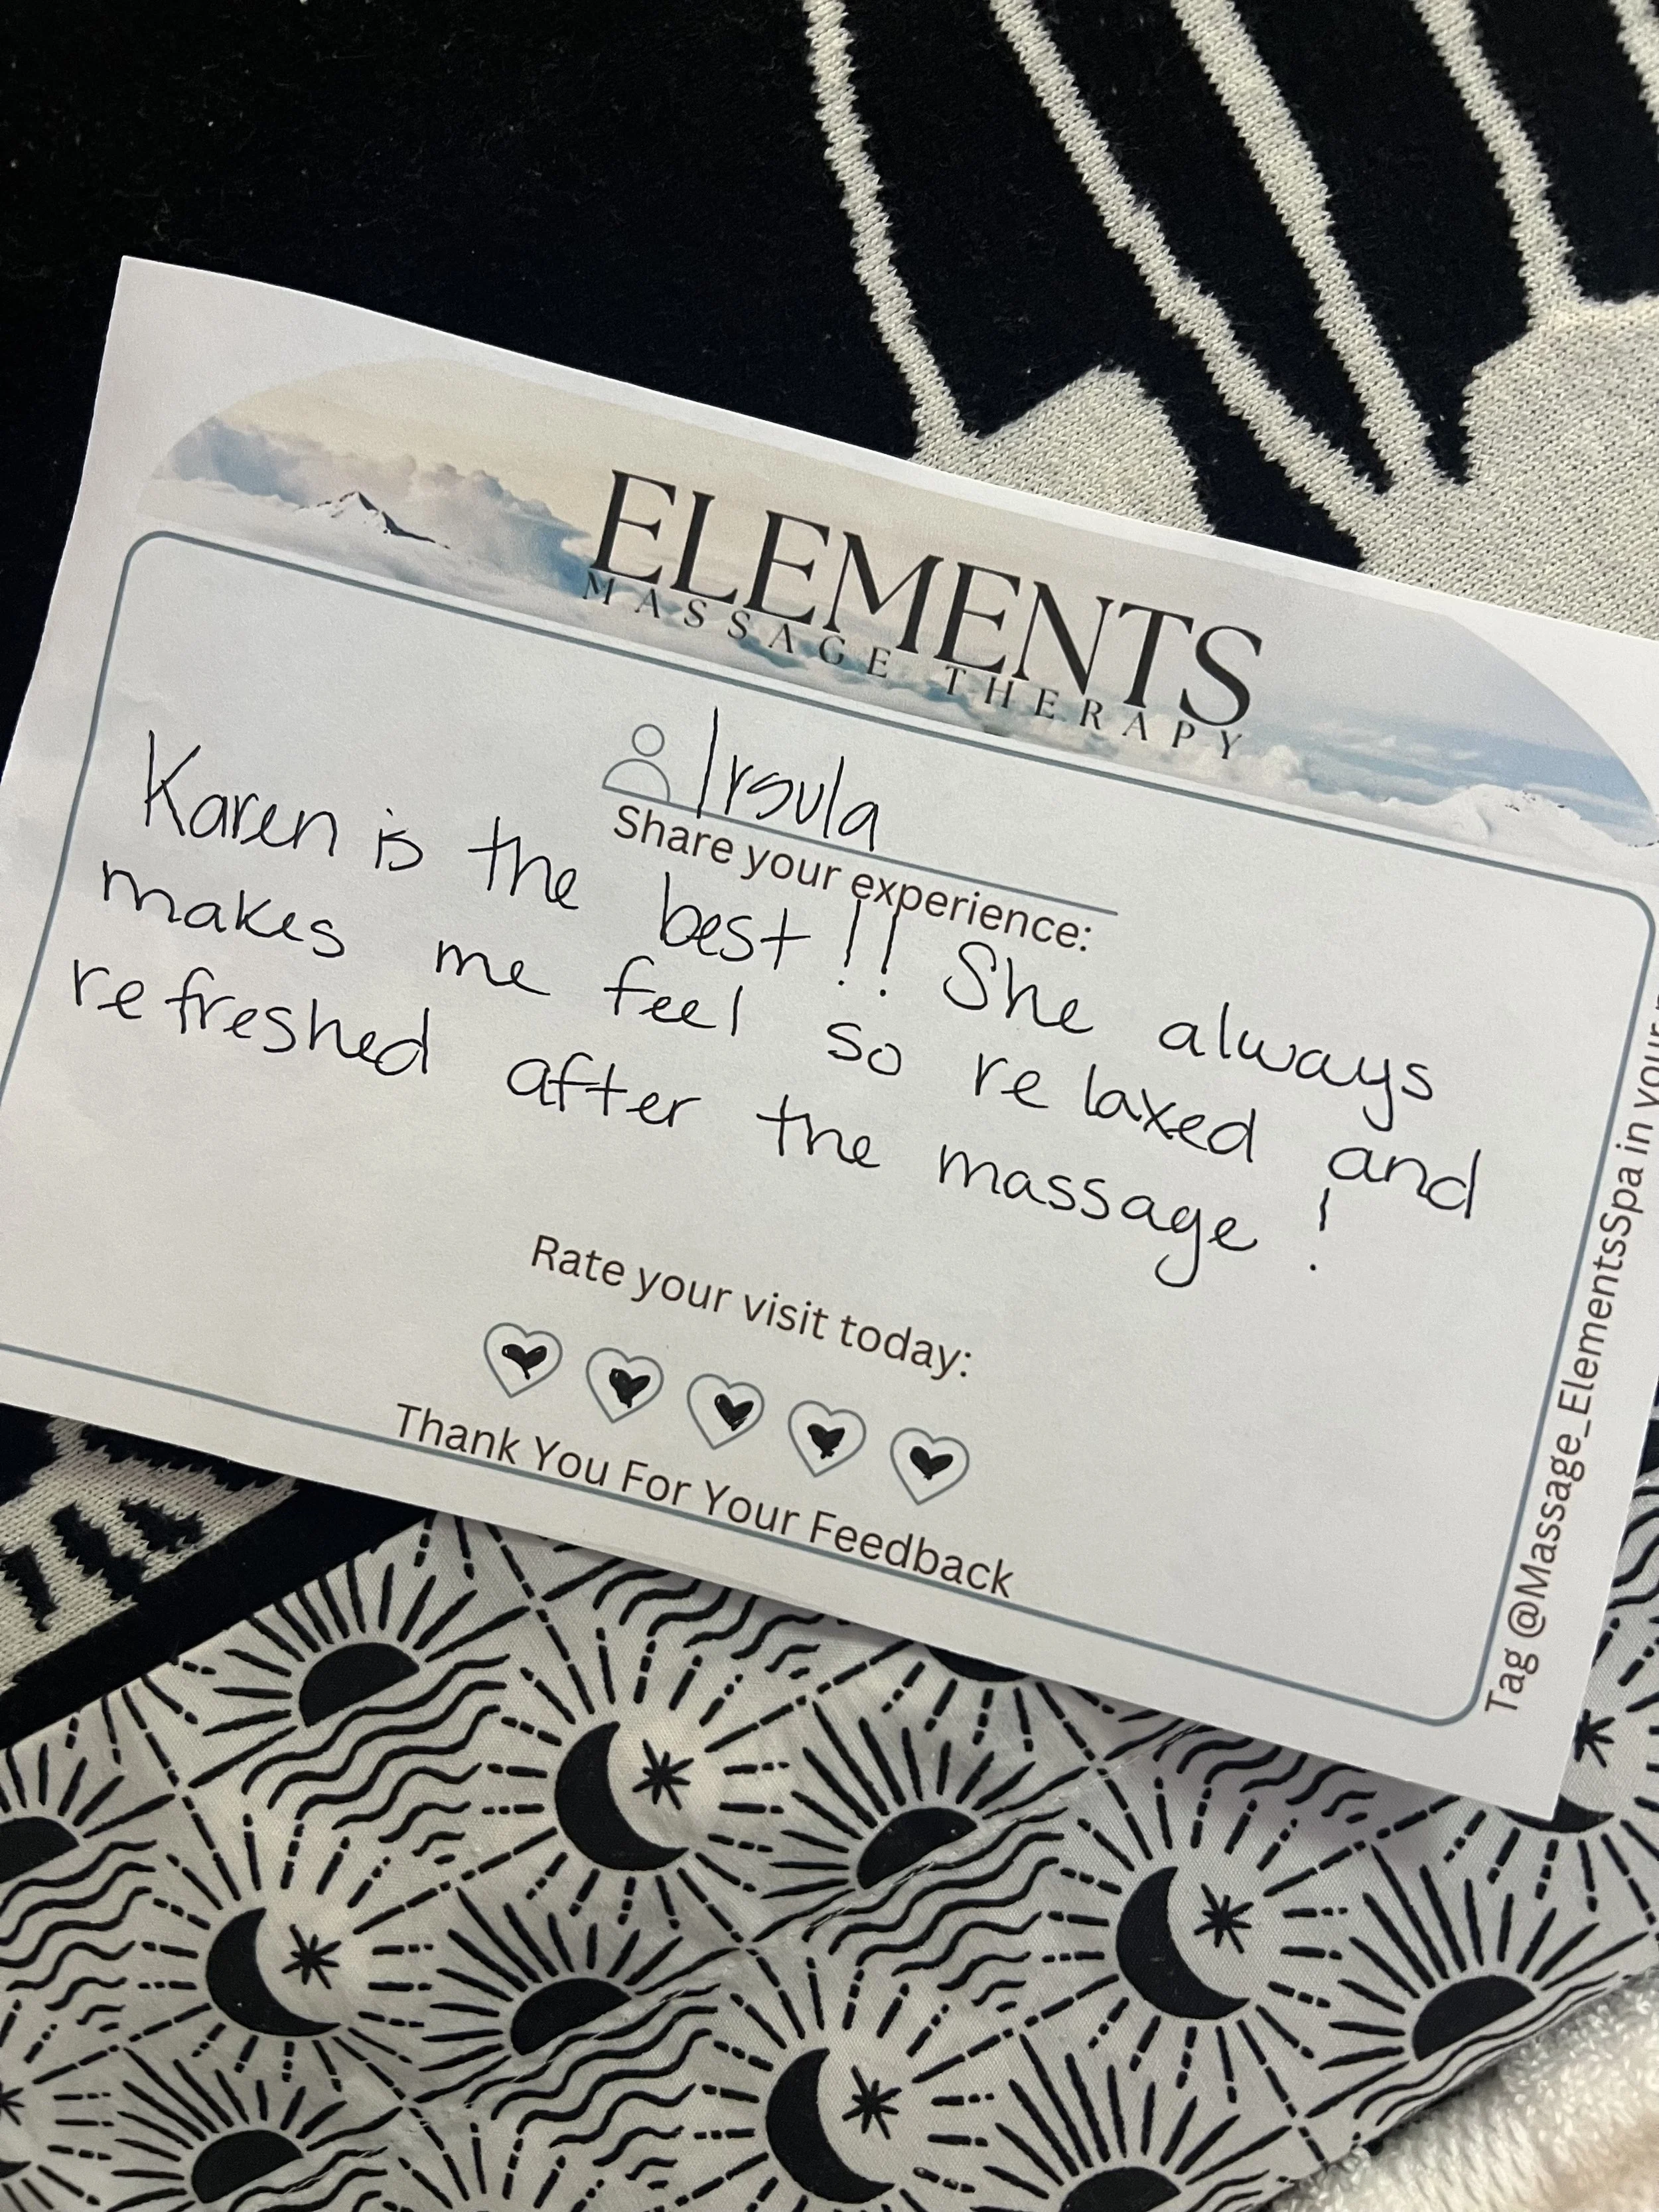 ELEMENTS
MASSAGE THERAPY
Irsula
Share your experience:
Karen is the best!! She always
makes me feel so relaxed and
refreshed after the massage!
Rate your visit today:
Thank You For Your Feedback
Tag @Massage_ElementsSpa in your